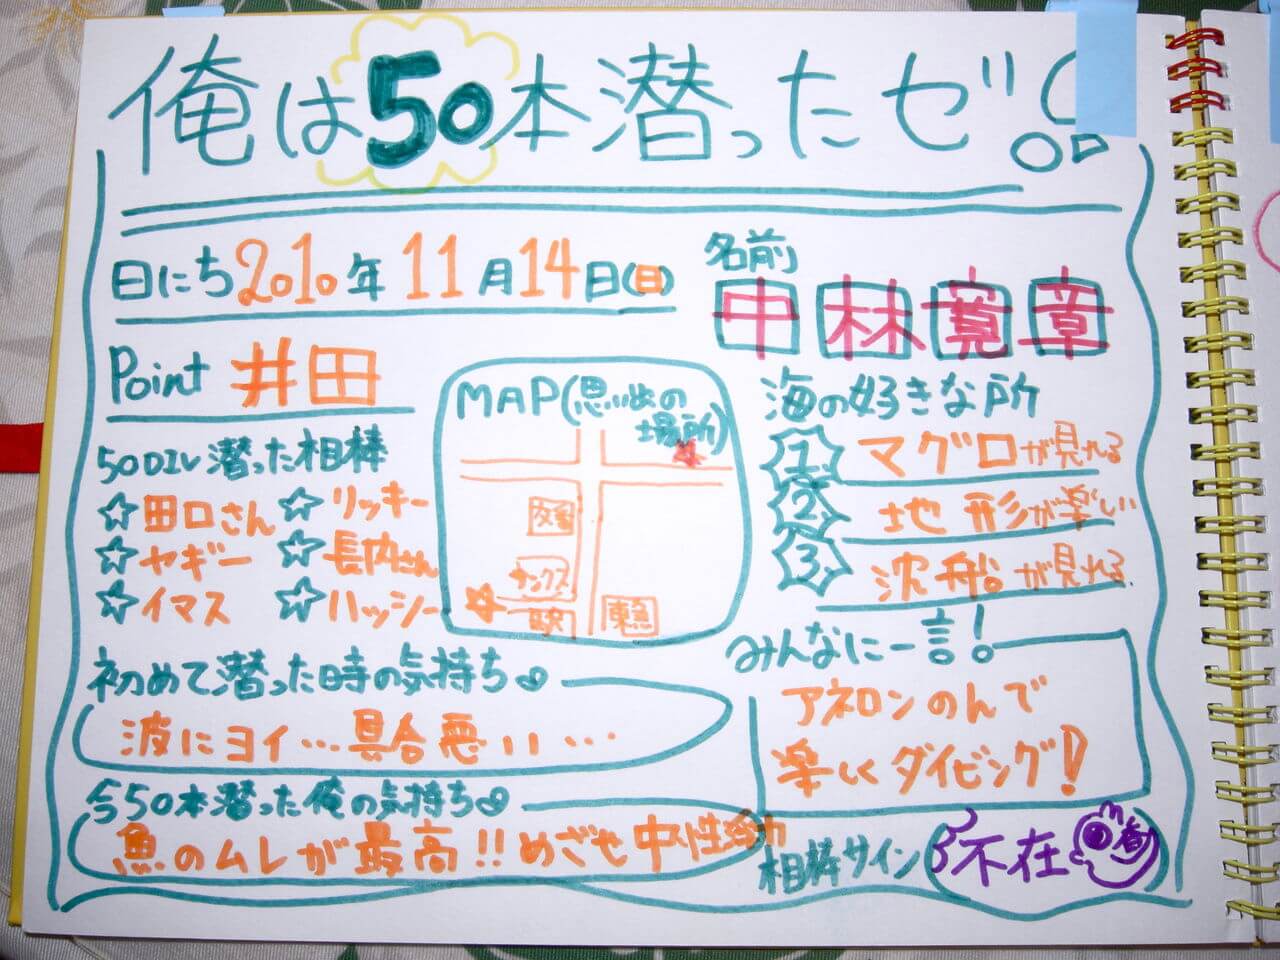 俺は50本潜ったゼ!
日にち2010年11月14日(日)
Point 井田
名前
中林寛章
MAP(思い出の
場所)
交番
サンクス
駅
東急
50DIV潜った相棒
☆田口さん ☆リッキー
☆ヤギー ☆長内さん
☆イマス ☆ハッシー
海の好きな所
1. マグロが見れる
2. 地形が楽しい
3. 沈船が見れる
初めて潜った時の気持ち
波にヨイ…具合悪ぃぃ…
今50本潜った俺の気持ち
魚のムレが最高!!めざせ中性浮力
みんなに一言!
アネロンのんで
楽しくダイビング!
相棒サイン
不在